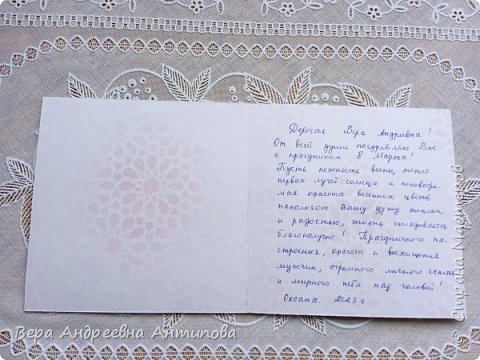 Дорогая Вера Андреевна!
От всей души поздравляю Вас
с праздником 8 Марта!
Пусть нежность весны, тепло
первых лучей солнца и неповтори-
мая красота весенних цветов
наполняют Вашу душу теплом
и радостью, жизнь складывается
благополучно! Праздничного на-
строения, красоты и восхищения
мужчин, огромного личного счастья
и мирного неба над головой!
Оксана. 2023 г
Вера Андреевна Антипова
Страна Мастеров